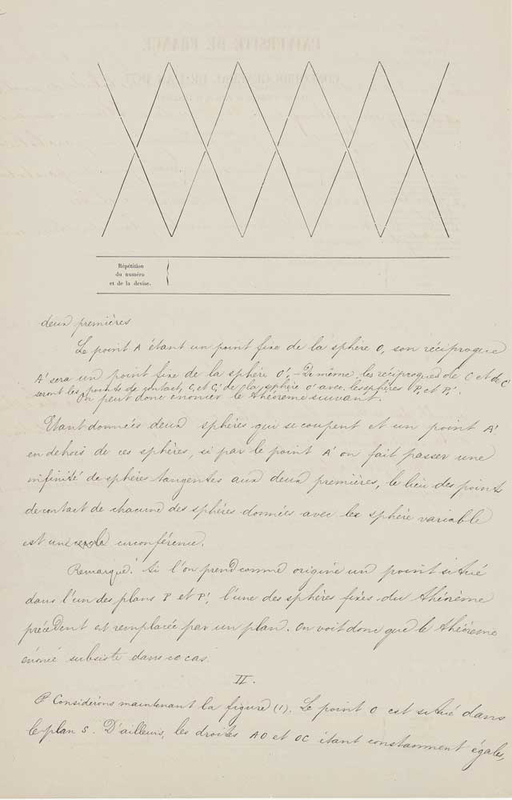 Répétition
du numéro
et de la devise.
deux premières
Le point A étant un point fixe de la sphère O, son réciproque
A' sera un point fixe de la sphère O'. De même les réciproques de C et de C'
seront les points de contact, C, et C', de la sphère O' avec les sphères P, et P'.
On peut donc énoncer le théorème suivant.
Etant données deux sphères qui se coupent et un point A'
en dehors de ces sphères, si par le point A' on fait passer une
infinité de sphère tangentes aux deux premières, le lieu des points
de contact de chacune des sphères données avec la sphère variable
est une circonférence.
Remarque. Si l'on prend comme origine un point situé
dans l'un des plans P et P', l'une des sphères fixes du théorème
précédent est remplacée par un plan. On voit donc que le théorème
énoncé subsiste dans ce cas.
II.
Considérons maintenant la figure (1). Le point O est situé dans
le plan S. D'ailleurs, les droites AO et OC étant constamment égales,